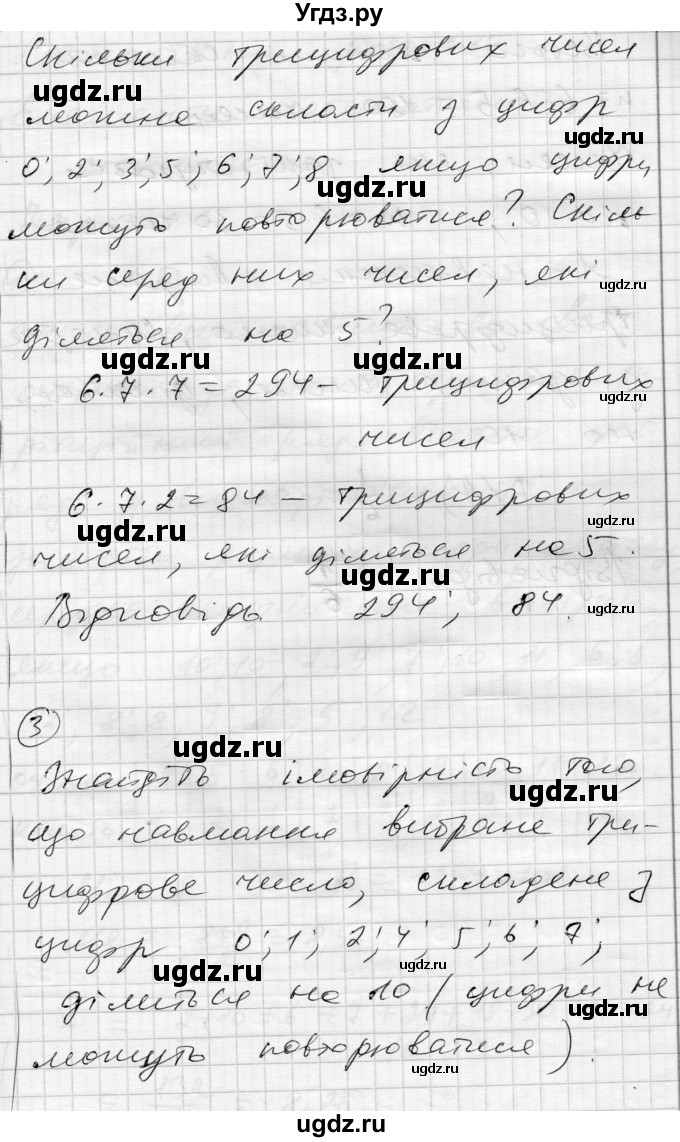 Угдз.ру
Скільки трицифрових чисел
ugdz.ru
можна скласти з цифр
ugdz.ru
0; 2; 3; 5; 6; 7; 8 якщо цифри
ugdz.ru
можуть повторюватися? Скіль
ки серед них чисел, які
ugdz.ru
діляться на 5?
ugdz.ru
6·7·7=294 – трицифрових
ugdz.ru
чисел
6·7·2=84 – трицифрових
ugdz.ru
ugdz.ru
чисел, які діляться на 5.
Відповідь 294; 84.
ugdz.ru
3
ugdz.ru
Знайдіть імовірність того,
ugdz.ru
що навмання вибране три-
цифрове число, складене з
цифр 0; 1; 2; 4; 5; 6; 7;
ugdz.ru
ugdz.ru
ділиться на 10 (цифри не
можуть повторюватися).
ugdz.ru
ugdz.ru
©ugdz.ru